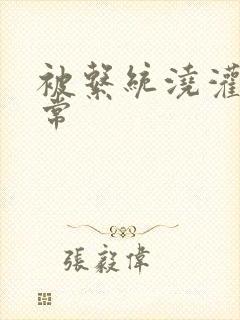 被繫統澆灌
常
張毅偉